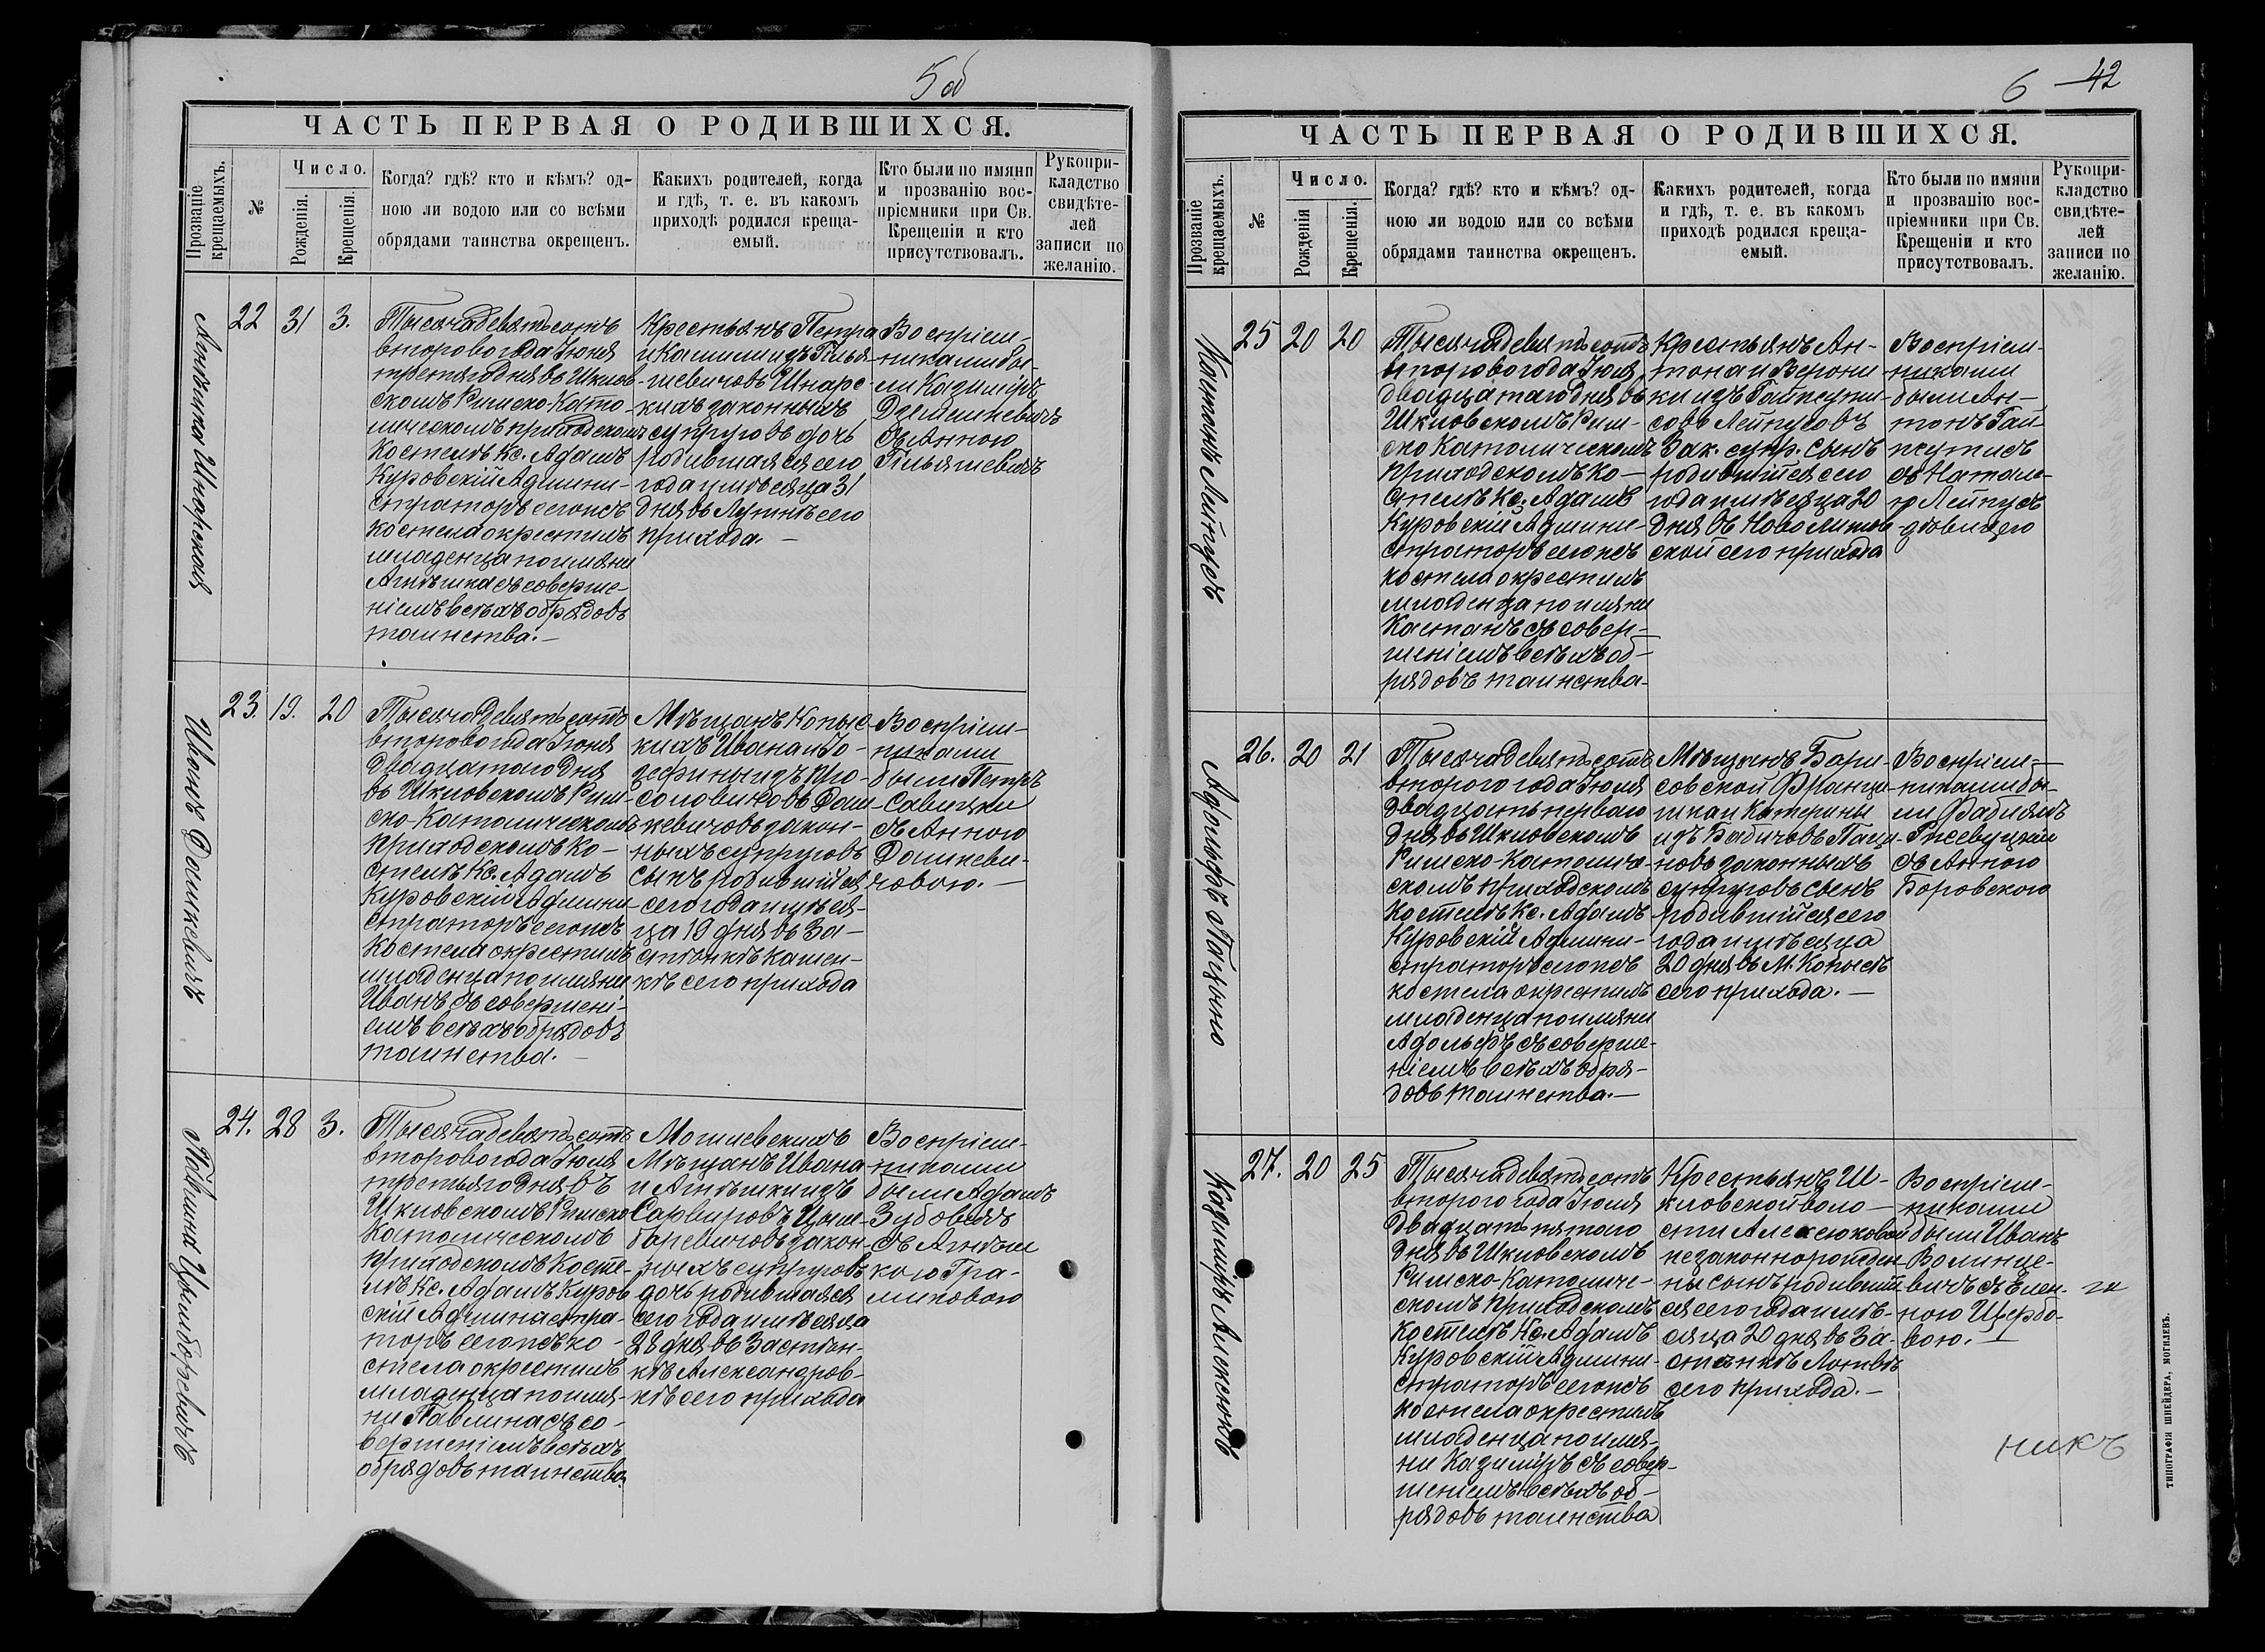 5 об
ЧАСТЬ ПЕРВАЯ О РОДИВШИХСЯ.
Прозваніе крещаемыхъ.
№
Число.
Рожденія.
Крещенія.
Когда? гдѣ? кто и кѣмъ? од-
ною ли водою или со всѣми
обрядами таинства окрещенъ.
Какихъ родителей, когда
и гдѣ, т. е. въ какомъ
приходѣ родился креща-
емый.
Кто были по имяни
и прозванію вос-
пріемники при Св.
Крещеніи и кто
присутствовалъ.
Рукопри-
кладство
свидѣте-
лей
записи по
желанію.
22
31
3.
Тысяча девятьсотъ
второго года Іюня
третяго дня въ Шклов-
скомъ Римско-Като-
лическомъ приходскомъ
Костелѣ Кс. Адамъ
Куровскій Админи-
страторъ сегожъ
костела окрестилъ
младенца по имяни
Агнѣшка съ соверше-
ніемъ всѣхъ обрядовъ
таинства.—
Крестьянъ Петра
законныхъ
супруговъ дочь
родившаяся сего
года и мѣсяца 31
дня въ сего
прихода.—
Воспріем-
никами бы-
ли Казиміръ
съ Анною
Иванъ Домкевичъ
23.
19.
20
Тысяча девятьсотъ
второго года Іюня
двадцатого дня
въ Шкловскомъ Рим-
ско-Католическомъ
приходскомъ Ко-
стелѣ Кс. Адамъ
Куровскій Админи-
страторъ сегожъ
Костела окрестилъ
младенца по имяни
Иванъ съ совершені-
емъ всѣхъ обрядовъ
таинства.—
Мѣщанъ Копыс-
кихъ Ивана и Іо-
зефины изъ
закон-
ныхъ супруговъ
сынъ родившійся
сего года и мѣся-
ца 19 дня въ За-
стѣнкѣ Камен-
кѣ сего прихода
Воспріем-
никами
были Петръ
Савицкій
съ Анною
Домкеви-
човою.—
Павлина Цимборевичъ
24.
28
3.
Тысяча девятьсотъ
второго года Іюля
третьяго дня въ
Шкловскомъ Римско
Католическомъ
приходскомъ Косте-
лѣ Кс. Адамъ Куров
скій Администра-
торъ сегожъ ко-
стела окрестилъ
младенца по имя-
ни Павлина съ со-
вершеніемъ всѣхъ
обрядовъ таинства.
Могилевскихъ
Мѣщанъ Ивана
и Агнѣшки изъ
Цим-
боревичовъ закон-
ныхъ супруговъ
дочь родившаяся
сего года и мѣсяца
28 дня въ Застѣн-
кѣ Александров-
кѣ сего прихода
Воспріем-
никами
были Адамъ
съ Агнѣш
кою
6 — 42
ЧАСТЬ ПЕРВАЯ О РОДИВШИХСЯ.
Прозваніе крещаемыхъ.
№
Число.
Рожденія
Крещенія.
Когда? гдѣ? кто и кѣмъ? од-
ною ли водою или со всѣми
обрядами таинства окрещенъ.
Какихъ родителей, когда
и гдѣ, т. е. въ какомъ
приходѣ родился креща-
емый.
Кто были по имяни
и прозванію вос-
пріемники при Св.
Крещеніи и кто
присутствовалъ.
Рукопри-
кладство
свидѣте-
лей
записи по
желанію.
25
20
20
Тысяча девятьсотъ
второго года Іюля
двадцатаго дня въ
Шкловскомъ Рим-
ско Католическомъ
приходскомъ Ко-
стелѣ Кс. Адамъ
Куровскій Админи-
страторъ сегожъ
костела окрестилъ
младенца по имяни
съ совер-
шеніемъ всѣхъ об-
рядовъ таинства.
Крестьянъ Ан-
тона и Верони-
ки изъ
Зак. супр. сынъ
родившійся сего
года и мѣсяца 20
дня въ
сего прихода
Воспріем-
никами
были Ан-
тонъ
Адольфъ Пацыно
26.
20
21
Тысяча девятьсотъ
второго года Іюля
двадцать перваго
дня въ Шкловскомъ
Римско-Католиче-
скомъ приходскомъ
Костелѣ Кс. Адамъ
Куровскій Админи-
страторъ сегожъ
костела окрестилъ
младенца по имяни
Адольфъ съ соверше-
ніемъ всѣхъ обря-
довъ таинства.—
Мѣщанъ Бори-
совской Франци-
шка и Катерины
изъ Бабичовъ
законныхъ
супруговъ сынъ
родившійся сего
года и мѣсяца
20 дня въ М. Копысѣ
сего прихода.—
Воспріем-
никами бы-
ли Фабіянъ
съ Анною
Боровскою
Казиміръ Алексюкъ
27.
20
25
Тысяча девятьсотъ
второго года Іюля
двадцать пятого
дня въ Шкловскомъ
Римско-Католиче-
скомъ приходскомъ
Костелѣ Кс. Адамъ
Куровскій Админи-
страторъ сегожъ
костела окрестилъ
младенца по имя-
ни Казиміръ съ совер-
шеніемъ всѣхъ об-
рядовъ таинства
Крестьянъ Ш-
кловской воло-
сти Алексюковой
незаконнорожден-
ны сынъ родившій
ся сего года и мѣ-
сяца 20 дня въ За-
стѣнкѣ
сего прихода.—
Воспріем-
никами
были Иванъ
съ Елен-
ною
ТИПОГРАФІЯ ШНЕЙДЕРА, МОГИЛЕВЪ.